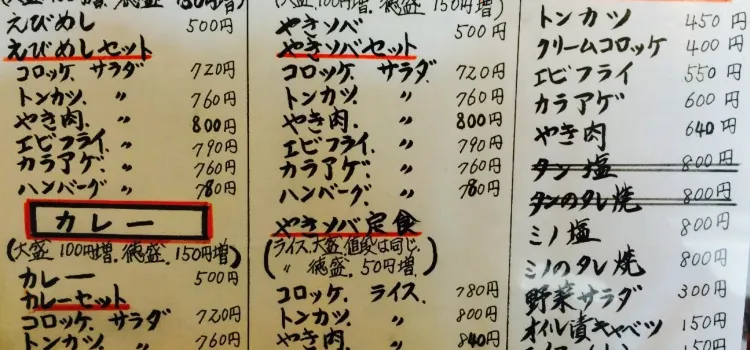 えびめし 500円
えびめしセット
コロッケ. サラダ 720円
トンカツ. 〃 760円
やき肉 〃 800円
エビフライ. 〃 790円
カラアゲ 〃 760円
ハンバーグ 〃 780円
カレー
(大盛.100円増.徳盛.150円増)
カレー 500円
カレーセット
コロッケ. サラダ 720円
トンカツ 〃 760円
(大盛.100円増.徳盛.150円増)
やきソバ 500円
やきソバセット
コロッケ. サラダ. 720円
トンカツ. 〃 760円
やき肉. 〃 800円
エビフライ. 〃 790円
カラアゲ. 〃 760円
ハンバーグ. 〃 780円
やきソバ定食
(ライス.大盛.値段は同じ.
〃 徳盛. 50円増.)
コロッケ. ライス. 780円
トンカツ. 〃 800円
やき肉 〃 840円
トンカツ 450円
クリームコロッケ 400円
エビフライ 550円
カラアゲ 600円
やき肉 640円
タン塩 800円
タンのタレ焼 800円
ミノ塩 800円
ミノのタレ焼 800円
野菜サラダ 300円
オイル漬キャベツ 150円
150円